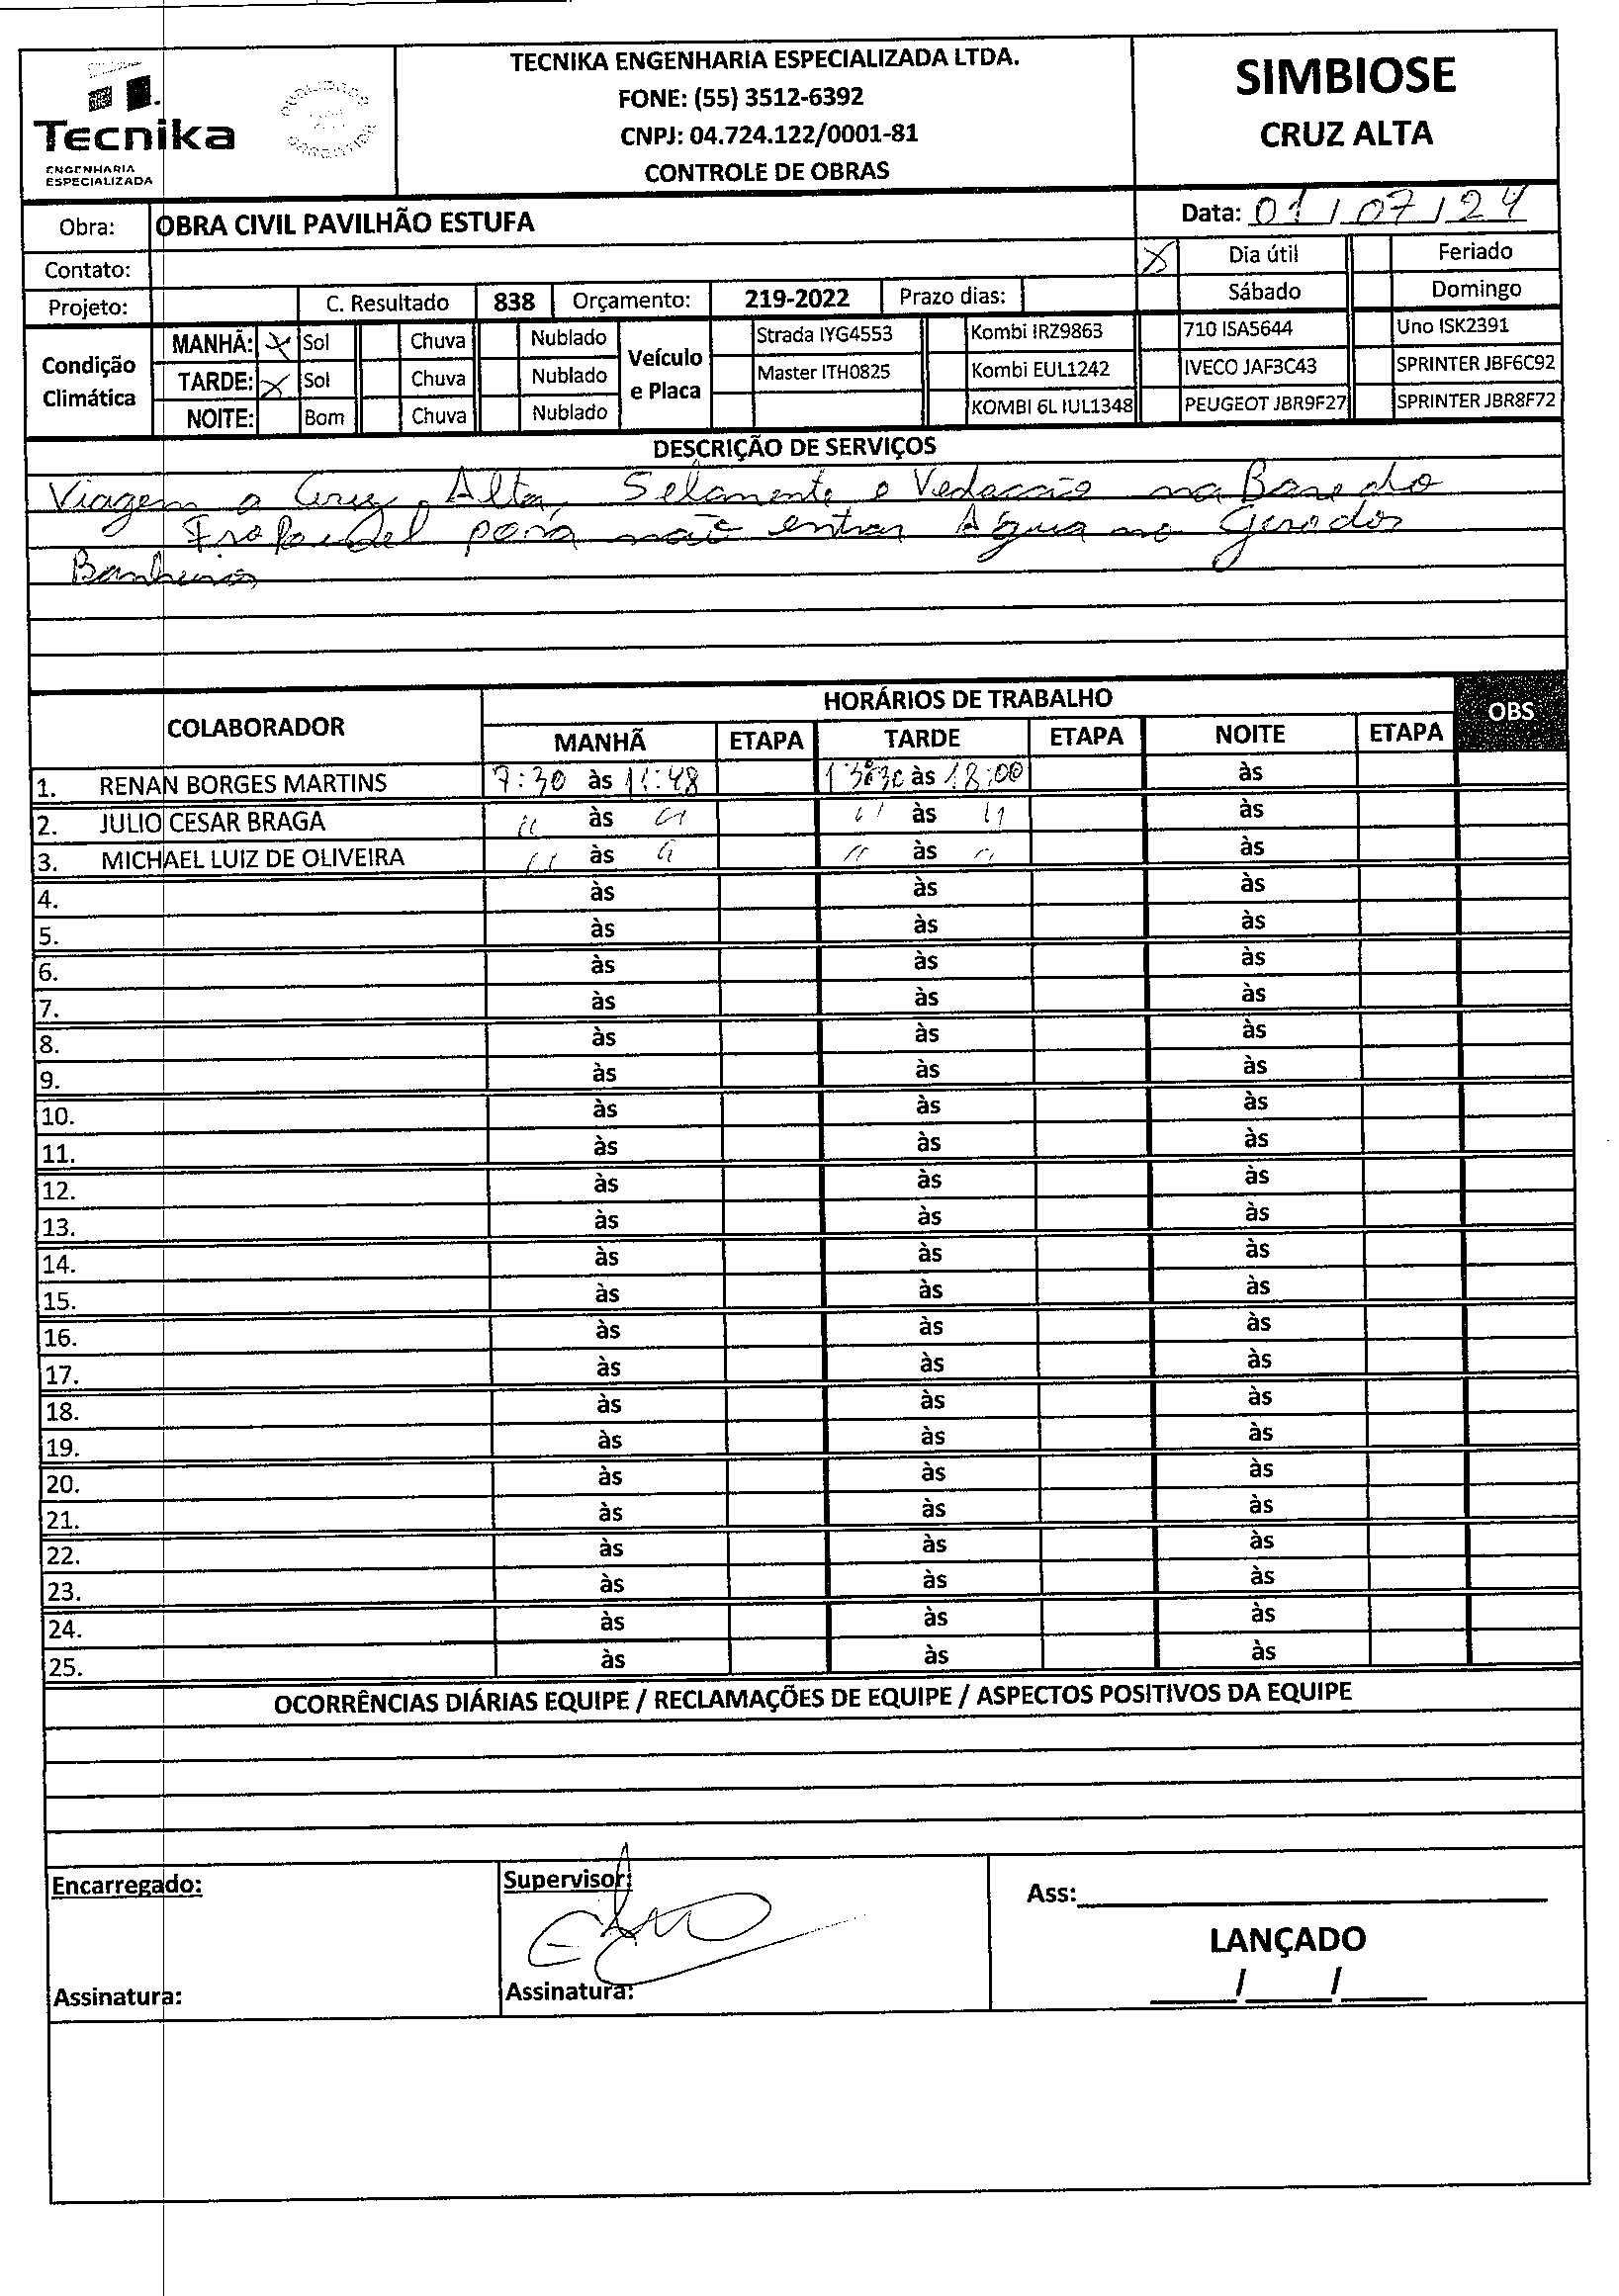 TECNIKA ENGENHARIA ESPECIALIZADA LTDA.
FONE: (55) 3512-6392
CNPJ: 04.724.122/0001-81
CONTROLE DE OBRAS
Tecnika
ENGENHARIA
ESPECIALIZADA
SIMBIOSE
CRUZ ALTA
Obra: OBRA CIVIL PAVILHÃO ESTUFA Data: 01/07/24
Contato: X Dia útil Feriado
Projeto: C. Resultado 838 Orçamento: 219-2022 Prazo dias: Sábado Domingo
Condição Climática
MANHÃ: X Sol Chuva Nublado
TARDE: X Sol Chuva Nublado
NOITE: Bom Chuva Nublado
Veículo e Placa
Strada IYG4553 Kombi IRZ9863 710 ISA5644 Uno ISK2391
Master ITH0825 Kombi EUL1242 IVECO JAF3C43 SPRINTER JBF6C92
KOMBI 6L IUL1348 PEUGEOT JBR9F27 SPRINTER JBR8F72
DESCRIÇÃO DE SERVIÇOS
Viagem a Cruz Alta, Selamente e Vedação na Base do
para não entrar Água no Gerador
Banheiros
COLABORADOR HORÁRIOS DE TRABALHO OBS
MANHÃ ETAPA TARDE ETAPA NOITE ETAPA
1. RENAN BORGES MARTINS 7:30 às 11:48 13:30 às 18:00 às
2. JULIO CESAR BRAGA " às " " às " às
3. MICHAEL LUIZ DE OLIVEIRA " às " " às " às
4. às às às
5. às às às
6. às às às
7. às às às
8. às às às
9. às às às
10. às às às
11. às às às
12. às às às
13. às às às
14. às às às
15. às às às
16. às às às
17. às às às
18. às às às
19. às às às
20. às às às
21. às às às
22. às às às
23. às às às
24. às às às
25. às às às
OCORRÊNCIAS DIÁRIAS EQUIPE / RECLAMAÇÕES DE EQUIPE / ASPECTOS POSITIVOS DA EQUIPE
Encarregado: Supervisor: Ass:
LANÇADO
Assinatura: Assinatura: / /